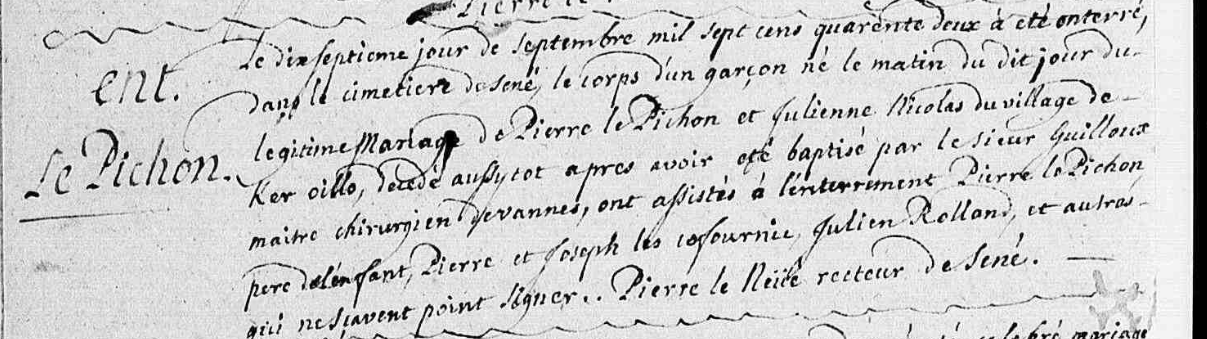 Pierre le
ent.
Le Pichon.
Le dixseptieme jour de septembre mil sept cens quarente deux à eté enterré,
dans le cimetiere de sené, le corps d'un garçon né le matin du dit jour du
legitime Mariage de Pierre le Pichon et Julienne Nicolas du village de
Ker oillo, decedé aussytot apres avoir eté baptisé par le sieur Guilloux
maitre chirurgien de vannes, ont assistés à l'enterrement Pierre le Pichon
pere de l'enfant, Pierre et Joseph les Julien Rolland, et autres
qui ne sçavent point signer.. Pierre le recteur de sené.
mariage